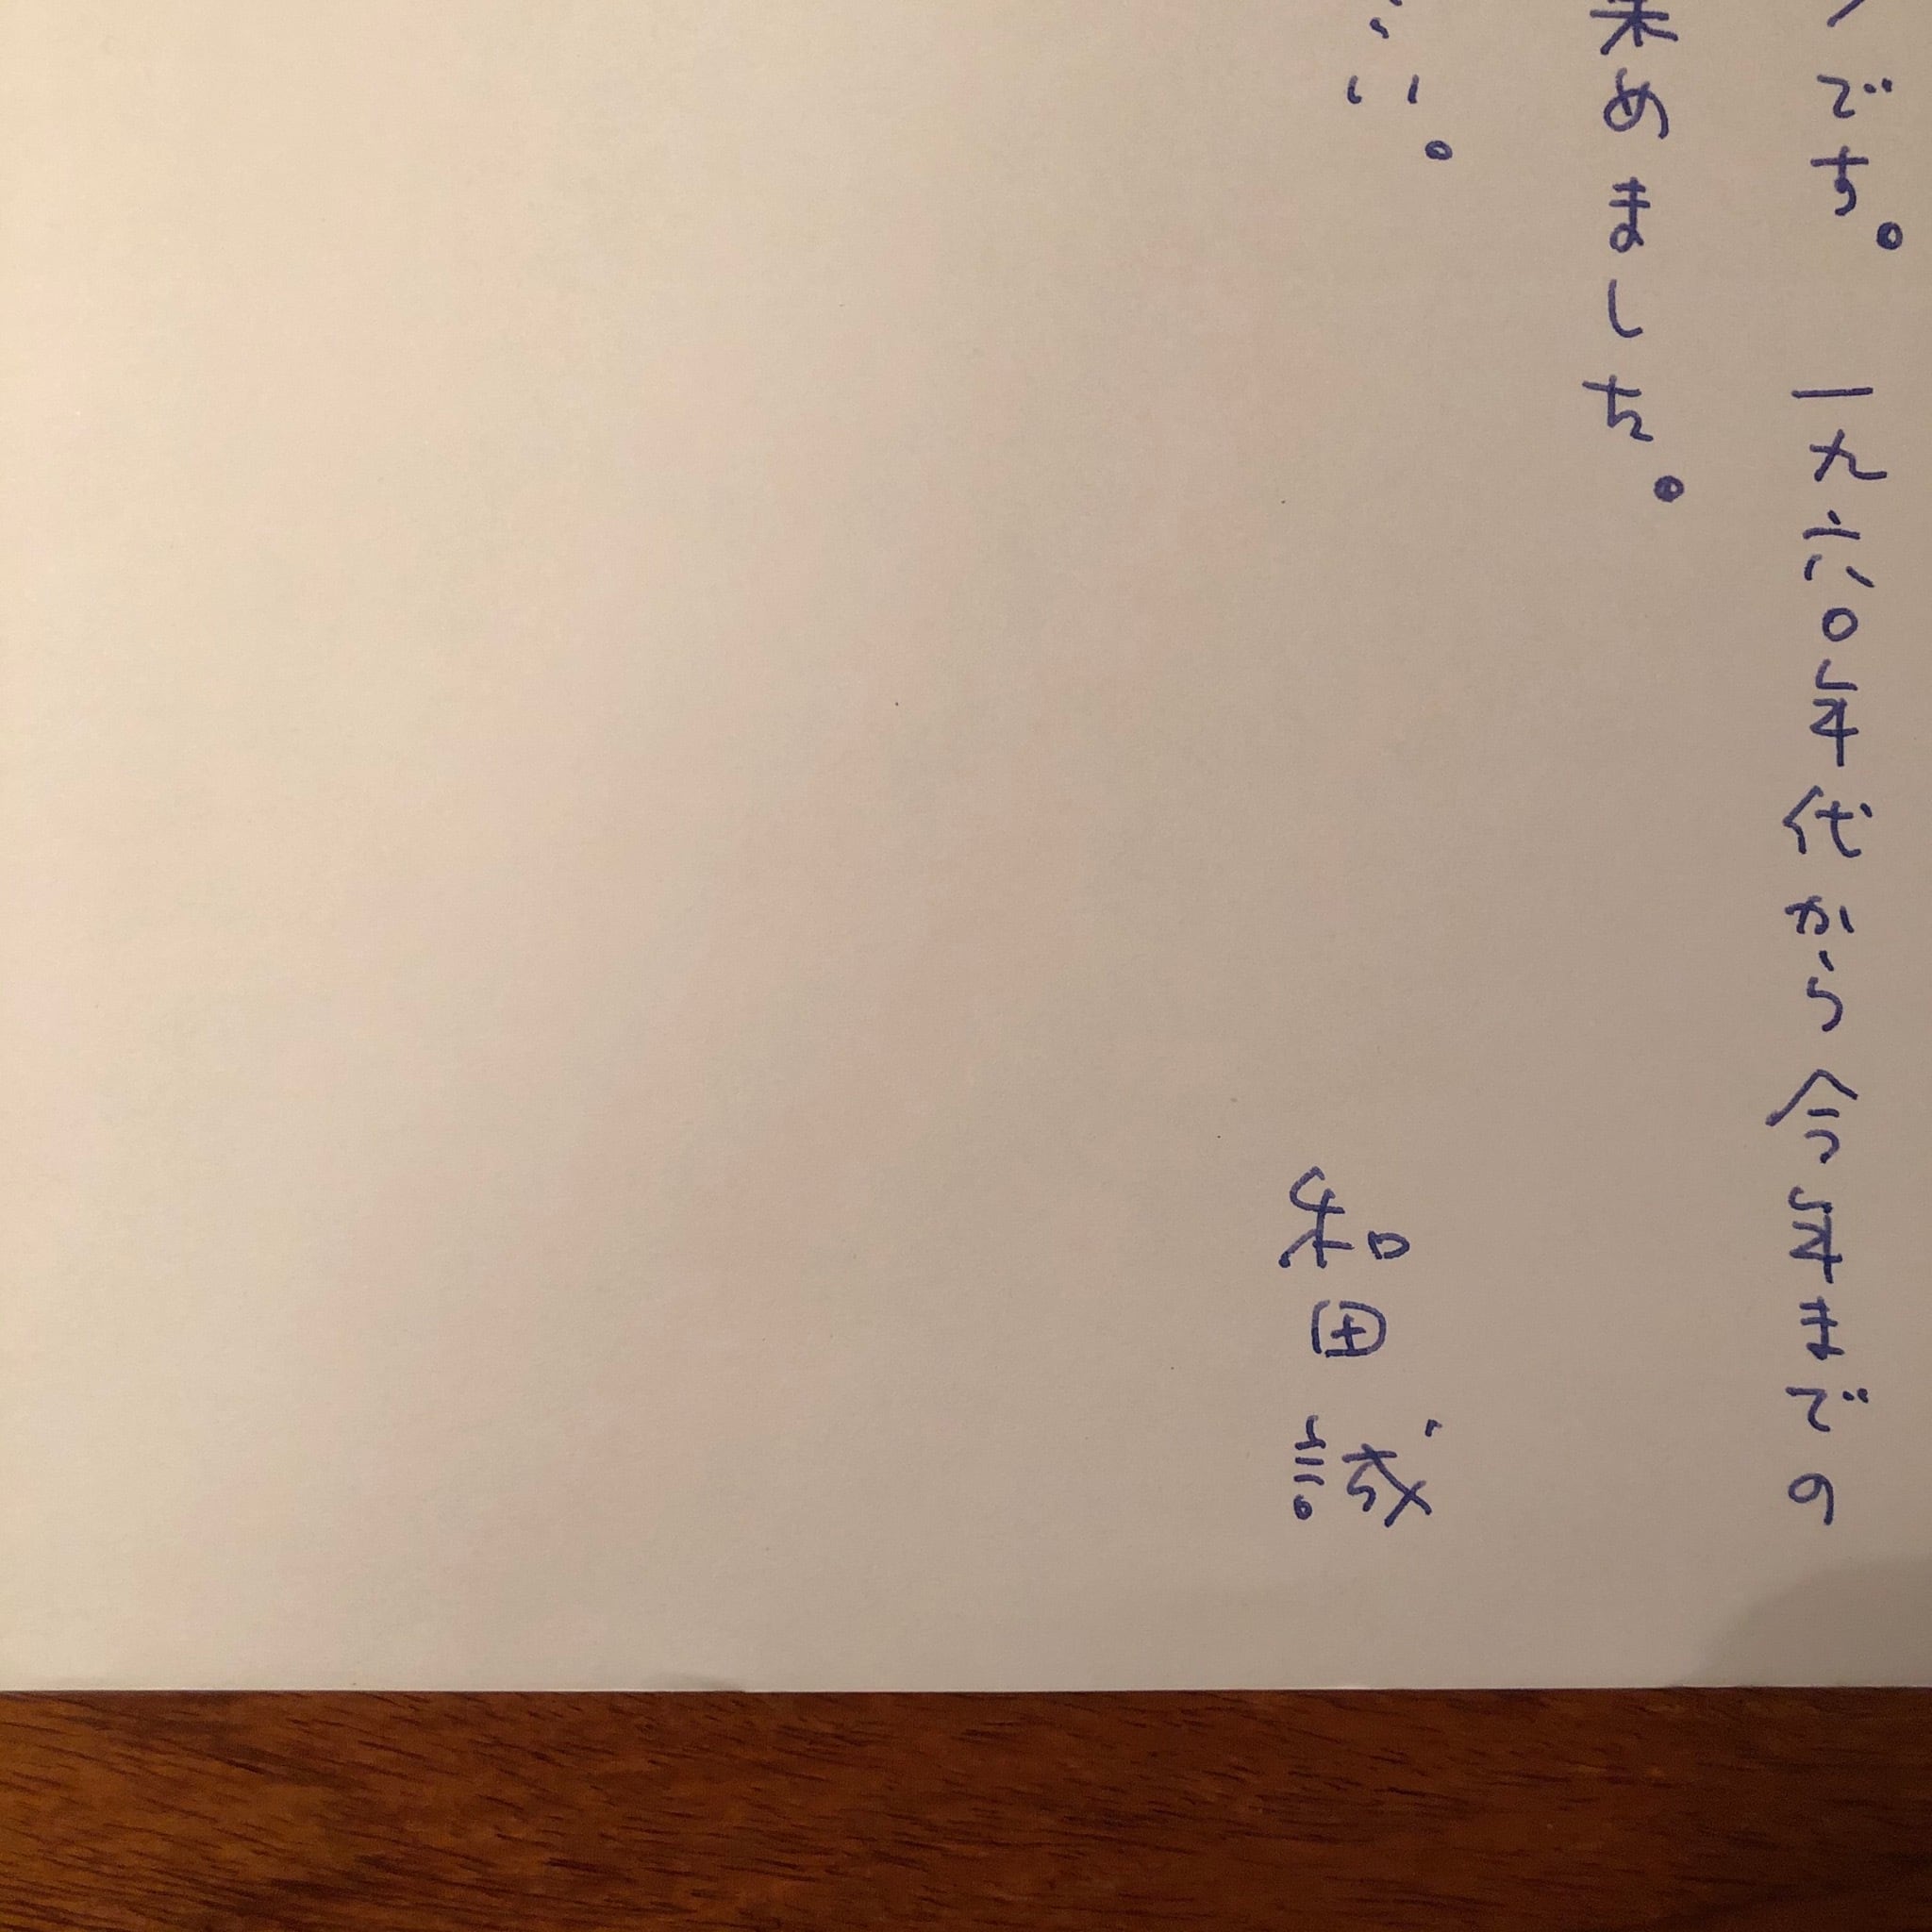 です。一九六〇年代から今年までの
集めました。
さい。
和田誠